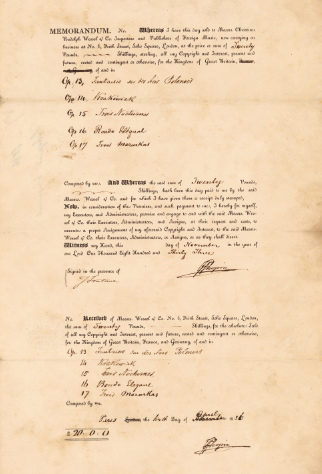 MEMORANDUM. No. Whereas I have this day sold to Messrs Christian
Rudolph Wessel & Co. Importers and Publishers of Foreign Music, now carrying on
business at No. 6, Frith Street, Soho Square, London, at the price or sum of Twenty
Pounds, Shillings, sterling, all my Copyright and Interest, present and
future, vested and contingent or otherwise, for the Kingdom of Great Britain,
of and in
Op. 13, Fantaisie sur des Airs Polonais
Op. 14. Krakowiak
Op. 15 Trois Nocturnes
Op. 16 Rondo Elégant
Op. 17 Four Mazurkas
Composed by me: And Whereas the said sum of Twenty Pounds,
Shillings, hath been this day paid to me by the said
Messrs. Wessel & Co. and for which I have given them a receipt duly stamped,
Now, in consideration of the Premises, and such payment to me, I hereby for myself,
my Executors, and Administrators, promise and engage to and with the said Messrs. Wes-
sel & Co. their Executors, Administrators, and Assigns, at their request and costs, to
execute a proper Assignment of my aforesaid Copyright and Interest, to the said Messrs
Wessel & Co. their Executors, Administrators, or Assigns, or as they shall direct.
Witness my Hand, this day of November in the year of
our Lord One Thousand Eight Hundred and Thirty Three
FChopin
Signed in the presence of
No. Received of Messrs. Wessel & Co. No. 6, Frith Street, Soho Square, London,
the sum of Twenty Pounds, Shillings, for the absolute Sale
of all my Copyright and Interest, present and future, vested and contingent or otherwise,
for the Kingdom of Great Britain, France, and Germany, of and in
Op. 13 Fantaisie sur des Airs Polonais
14 Krakowiak
15 Trois Nocturnes
16 Rondo Elegant
17 Four Mazurkas
Composed by me.
Paris London, the Day of 18
£ 20.0.0
FChopin